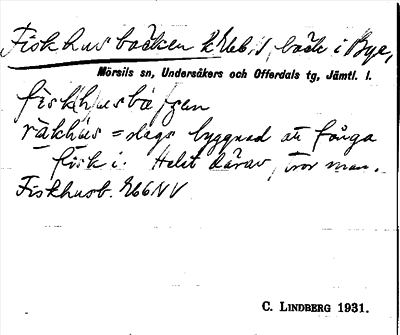 Fiskhusbäcken bäck i Bye,
Mörsils sn, Undersåkers och Offerdals tg, Jämtl. l.
räkhus = slags byggnad att fånga
fisk i. Helst därav, tror man.
Fiskhusb. 266 NV
C. LINDBERG 1931.